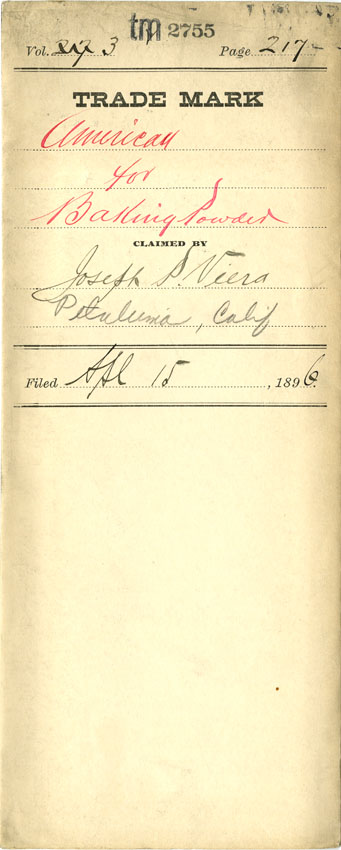 tm 2755
Vol. 3 Page 217-
TRADE MARK
American
for
Baking Powder
CLAIMED BY
Joseph P. Viera
Petaluma, Calif
Filed Apl 15, 1896.